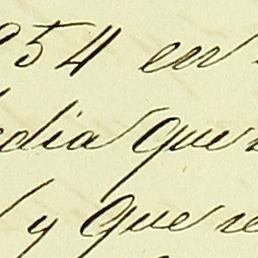 954 en
edia que
y que re